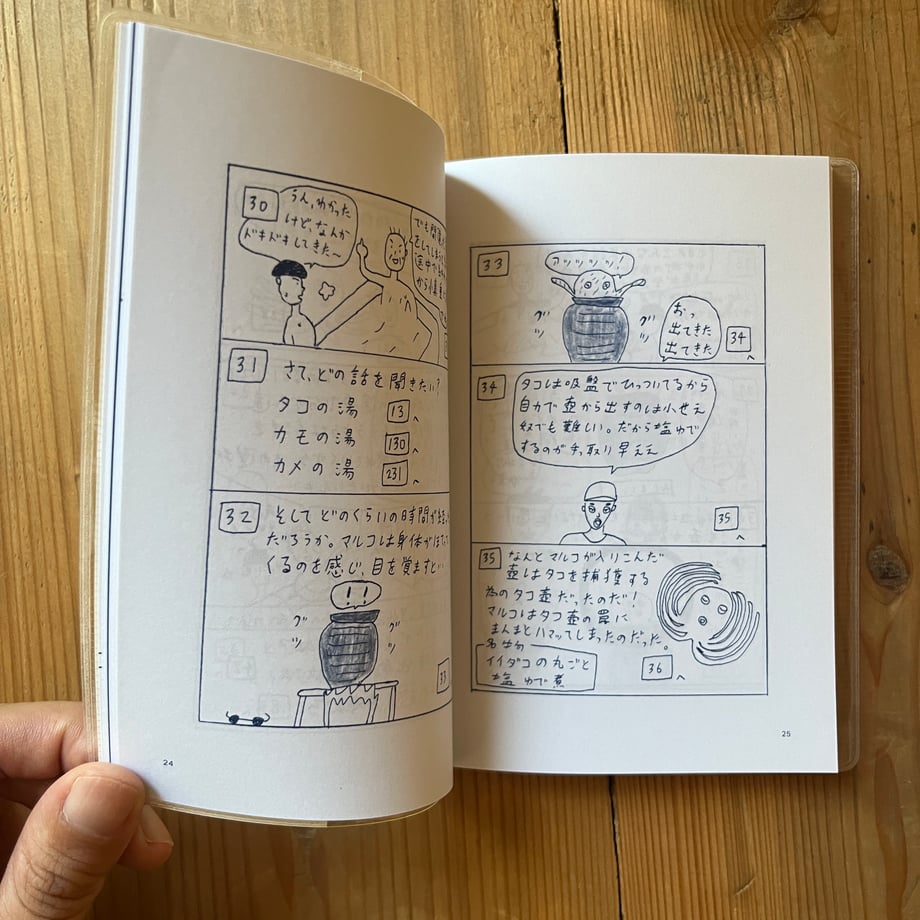 30
うん、わかった
けど、なんか
ドキドキしてきた〜
でも間違
をしてしま
途中で
から慎重
31
さて、どの話を聞きたい?
タコの湯 13へ
カモの湯 130へ
カメの湯 231へ
32
そしてどのくらいの時間が経っ
だろうか。マルコは身体がほてっ
くるのを感じ、目を覚ますと…
!!
グツ
グツ
33
24
33
アツツツツ!
グツ
グツ
おっ
出てきた
出てきた
34へ
34
タコは吸盤でひっついてるから
自力で壺から出すのは小せえ
奴でも難しい。だから塩ゆで
するのが手っ取り早ええ
35へ
35
なんとマルコが入りこんだ
壺はタコを捕獲する
為のタコ壺だったのだ!
マルコはタコ壺の罠に
まんまとハマッてしまったのだった。
名生勿
イイダコの丸ごと
塩ゆで煮
36へ
25